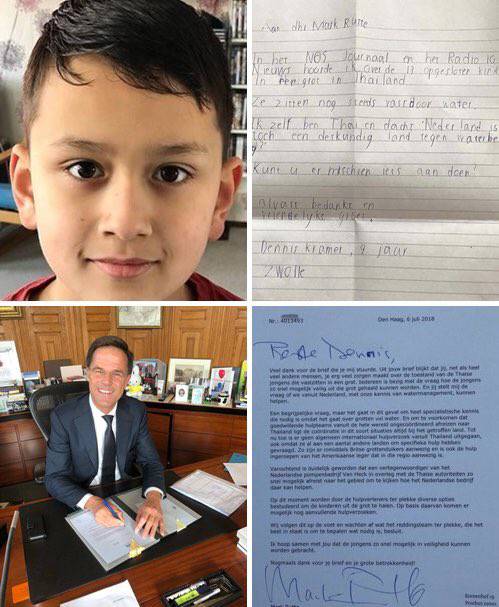 Aan dhr Mark Rutte
In het NOS Journaal en het Radio 10
Nieuws hoorde ik over de 13 opgesloten kin
In een grot in Thailand
Ze zitten nog steeds vast door water.
Ik zelf ben Thai en dacht: Nederland is
toch een deskundig land tegen waterbe
Kunt u er misschien iets aan doen?
alvast bedankt en
vriendelijke groet,
Dennis Kramer, 9 jaar
Zwolle
Nr.: 4013493 Den Haag, 6 juli 2018
Beste Dennis,
Veel dank voor de brief die je mij stuurde. Uit jouw brief blijkt dat jij, net als heel
veel andere mensen, je erg veel zorgen maakt over de toestand van de Thaise
jongens die vastzitten in een grot. Iedereen is bezig met de vraag hoe de jongens
zo snel mogelijk veilig uit die grot gehaald kunnen worden. En jij stelt mij de
vraag of we vanuit Nederland, met onze kennis van watermanagement, kunnen
helpen.
Een begrijpelijke vraag, maar het gaat in dit geval om heel specialistische kennis
die nodig is omdat het gaat over grotten vol water. En om te voorkomen dat
goedwillende hulpteams vanuit de hele wereld ongecoördineerd afreizen naar
Thailand ligt de coördinatie in dit soort situaties altijd bij het getroffen land. Tot
nu toe is er geen algemeen internationaal hulpverzoek vanuit Thailand uitgegaan,
ook omdat ze al aan een aantal andere landen om specifieke hulp hebben
gevraagd. Zo zijn er inmiddels Britse grottenduikers aanwezig en is ook de hulp
ingeroepen van het Amerikaanse leger dat in die regio aanwezig is.
Vanochtend is duidelijk geworden dat een vertegenwoordiger van het
Nederlandse pompenbedrijf Van Heck in overleg met de Thaise autoriteiten zo
snel mogelijk afreist naar het gebied om te kijken hoe het Nederlandse bedrijf
daar kan helpen.
Op dit moment worden door de hulpverleners ter plekke diverse opties
bestudeerd om de kinderen uit de grot te halen. Op basis daarvan komen er
mogelijk nog aanvullende hulpverzoeken.
Wij volgen dit op de voet en wachten af wat het reddingsteam ter plekke, die het
best in staat is om te bepalen wat nodig is, besluit.
Ik hoop samen met jou dat de jongens zo snel mogelijk in veiligheid kunnen
worden gebracht.
Nogmaals dank voor je brief en je grote betrokkenheid!
Mark Rutte
Binnenhof 19
Mark Rutte